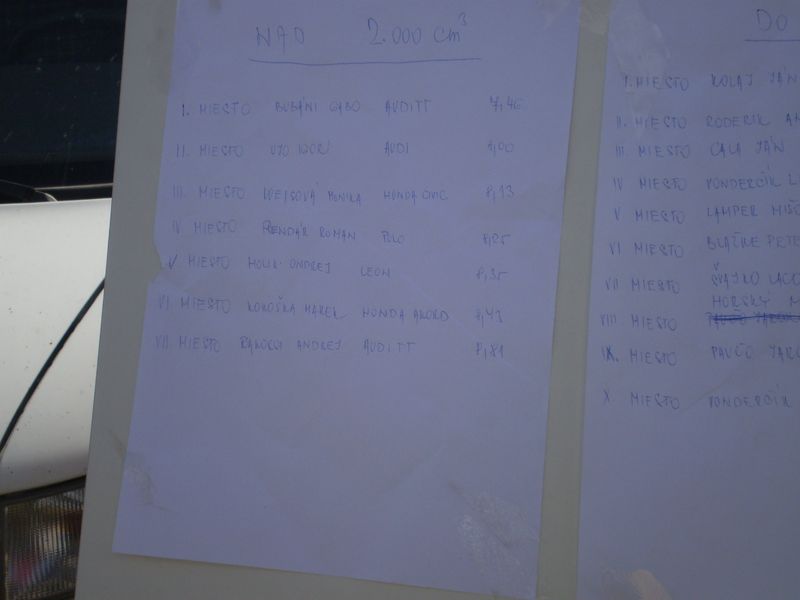 NAD 2.000 cm³
I. MIESTO BUBÁNI GABO AUDI TT 7,46
II. MIESTO UJO IGOR AUDI 8,00
III. MIESTO WEJSOVÁ MONIKA HONDA CIVIC 8,13
IV MIESTO RENDÁR ROMAN POLO 8,25
V MIESTO HOLIK ONDREJ LEON 8,35
VI MIESTO KOKOŠKA MAREK HONDA AKORD 8,43
VII MIESTO ANDREJ AUDI TT 8,81
DO
I. MIESTO KOLAJ JÁN
II. MIESTO RODERIK
III. MIESTO CALA JÁN
IV MIESTO VONDERČÍK L
V MIESTO LAMPER MIŠ
VI MIESTO BLAŽKE PETE
VII MIESTO ŠVAJKO LACO
HORSKÝ M
VIII MIESTO
IX. MIESTO PAVČO JARO
X. MIESTO VONDERČÍK